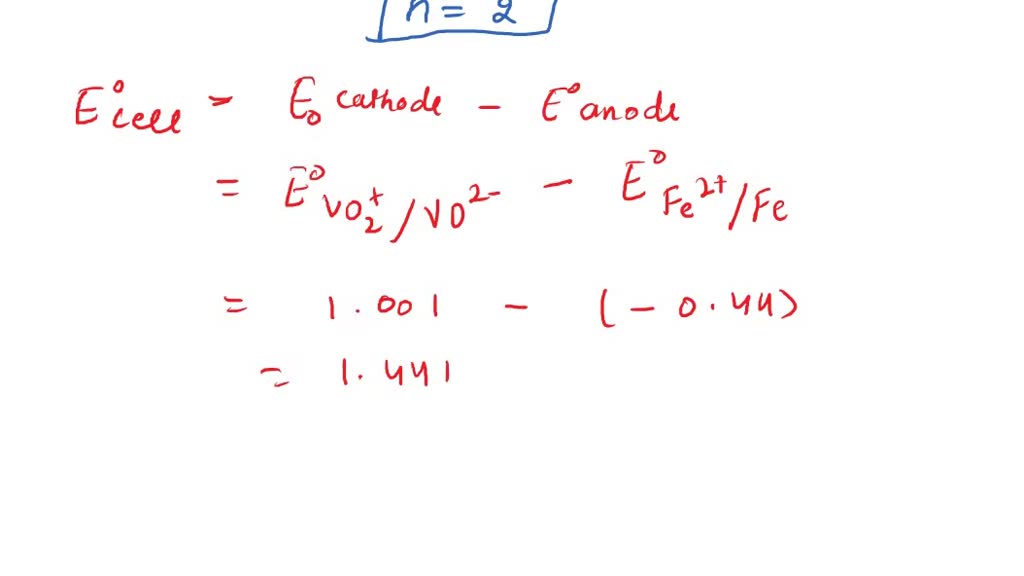 n = 2
E°cell = E₀ cathode - E° anode
= E° VO₂⁺/VO²⁻ - E° Fe²⁺/Fe
= 1.001 - (-0.44)
= 1.441